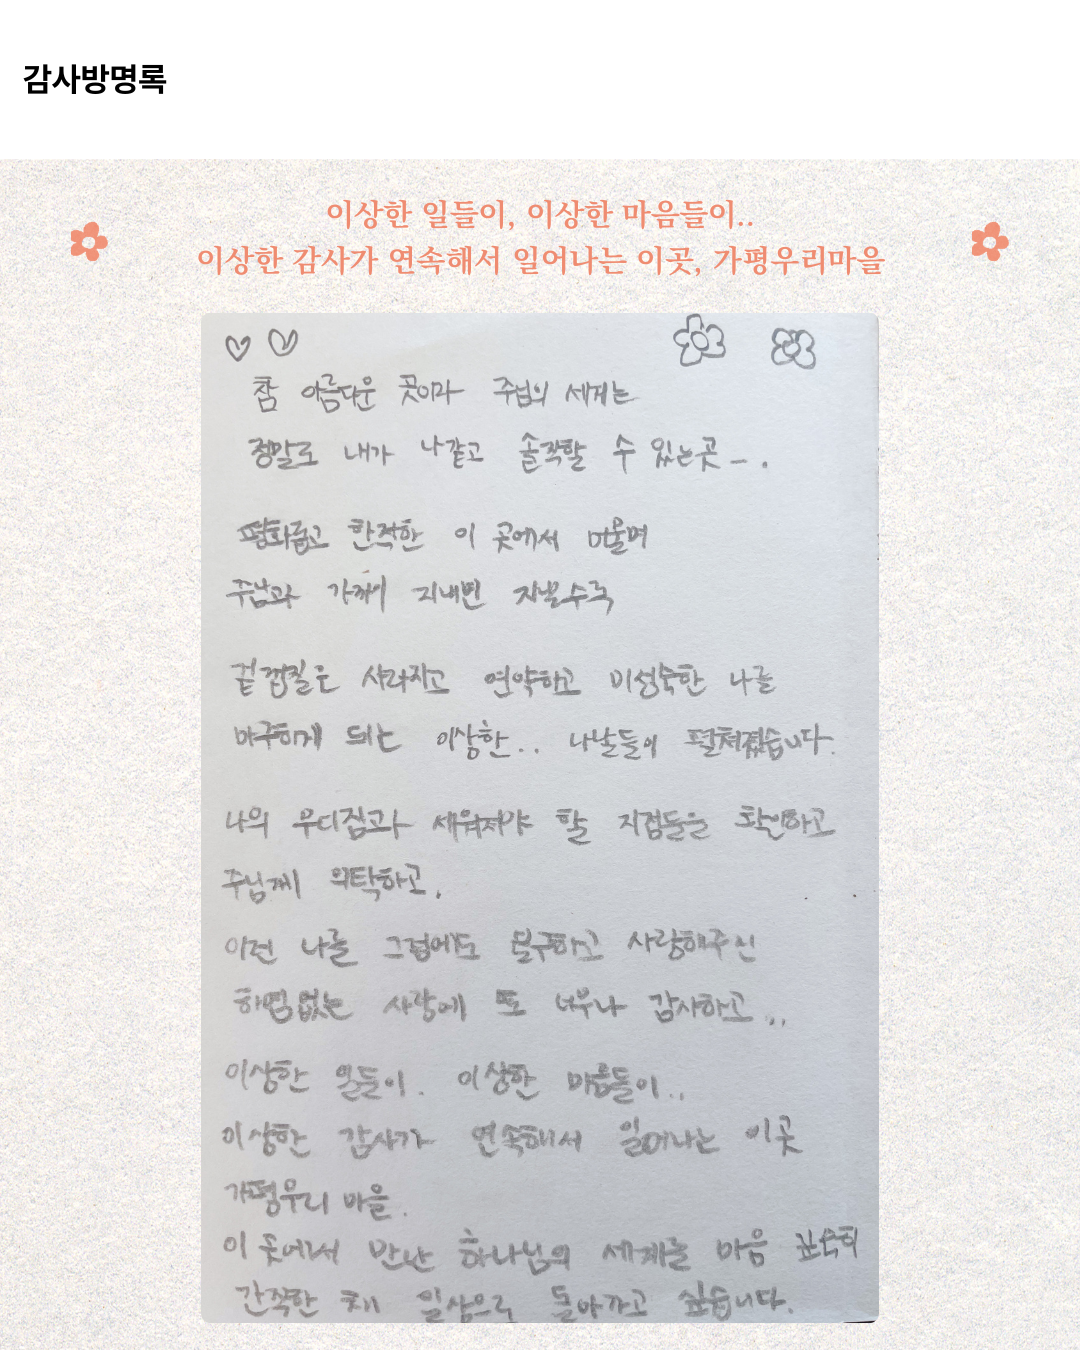 감사방명록
이상한 일들이, 이상한 마음들이..
이상한 감사가 연속해서 일어나는 이곳, 가평우리마을
참 아름다운 곳이라 주님의 세계는
정말로 내가 나같고 솔직할 수 있는곳 - .
평화롭고 한적한 이 곳에서 머물며
주님과 가까이 지내면 지낼수록
겉껍질은 사라지고 연약하고 미성숙한 나를
마주하게 되는 이상한.. 나날들이 펼쳐졌습니다.
나의 무너짐과 세워져야 할 지점들을 확인하고
주님께 의탁하고,
이런 나를 그럼에도 불구하고 사랑해주신
하염없는 사랑에 또 너무나 감사하고..
이상한 일들이. 이상한 마음들이..
이상한 감사가 연속해서 일어나는 이곳
가평우리 마을.
이 곳에서 만난 하나님의 세계를 마음
간직한 채 일상으로 돌아가고 싶습니다.